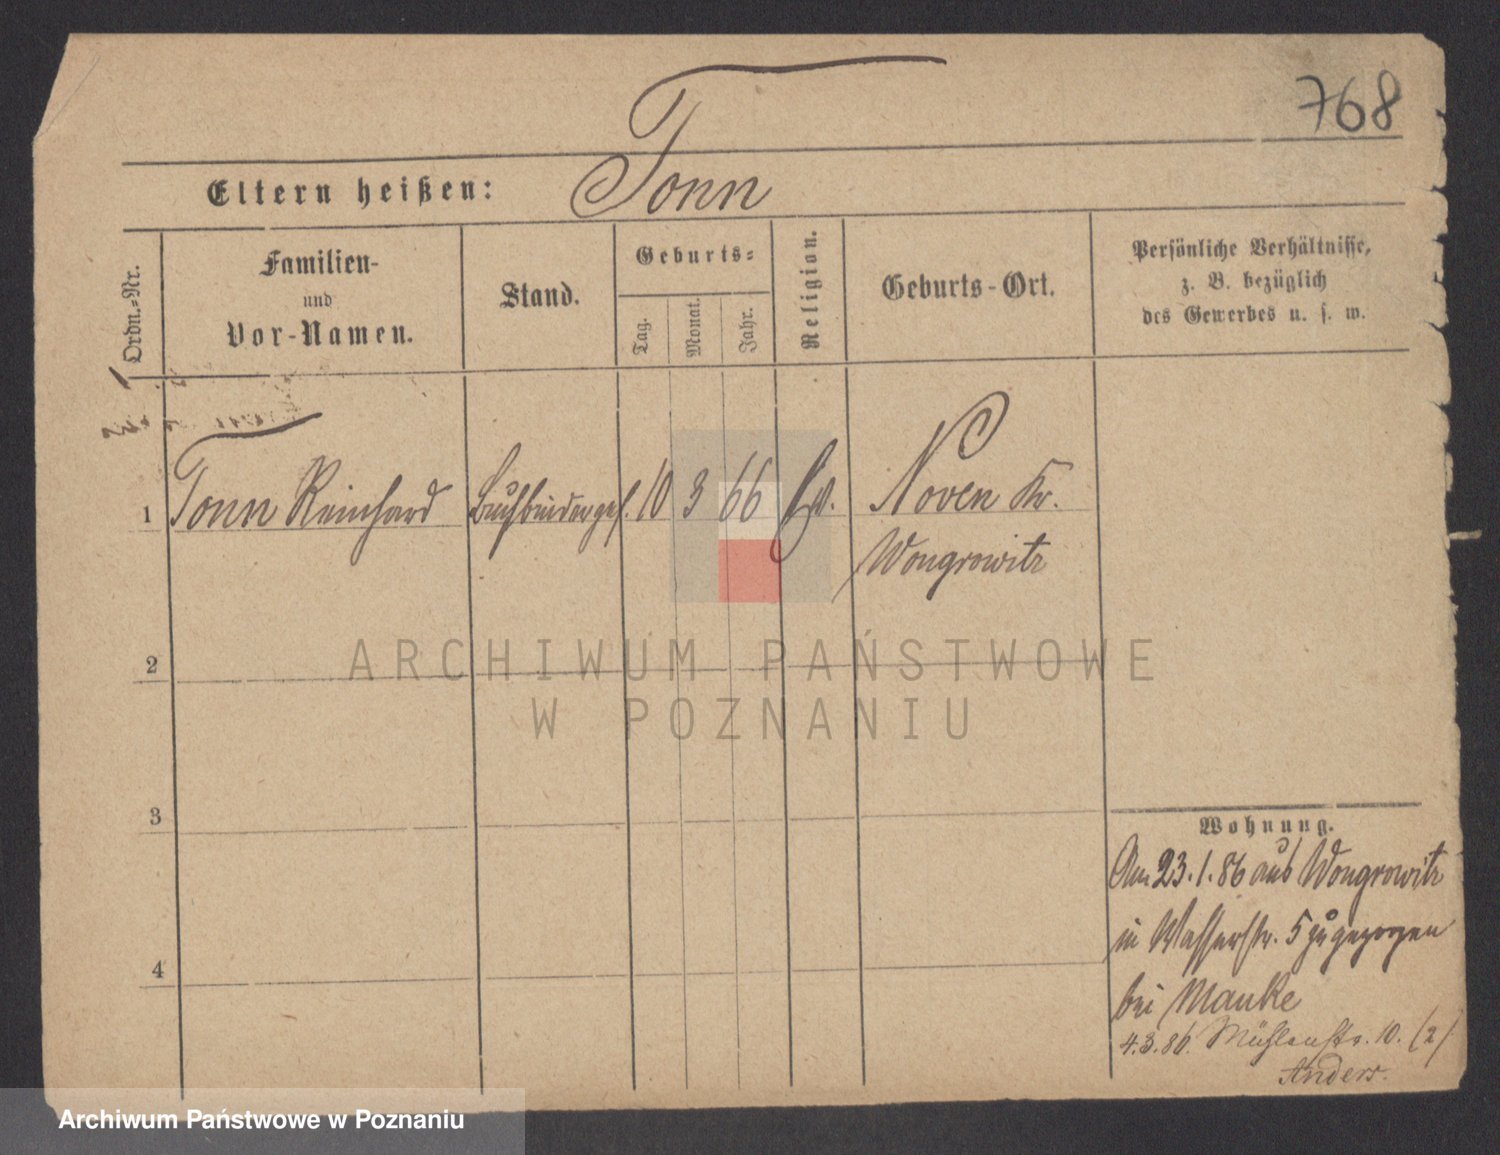 768
Eltern heißen: Tonn
Ordn.-Nr.
Familien-
und
Vor-Namen.
Stand.
Geburts-
Tag.
Monat.
Jahr.
Religion.
Geburts-Ort.
Persönliche Verhältnisse,
z. B. bezüglich
des Gewerbes u. s. w.
1 Tonn Reinhard Buchbinderges. 10 3 66 Ev. Noven Kr.
Wongrowitz
2
3
4
Wohnung.
Am 23.1.86 aus Wongrowitz
in Wasserstr. 5 zugezogen
bei Manke
4.3.86. Mühlenstr. 10. (2)
Anders.
ARCHIWUM PAŃSTWOWE
W POZNANIU
Archiwum Państwowe w Poznaniu